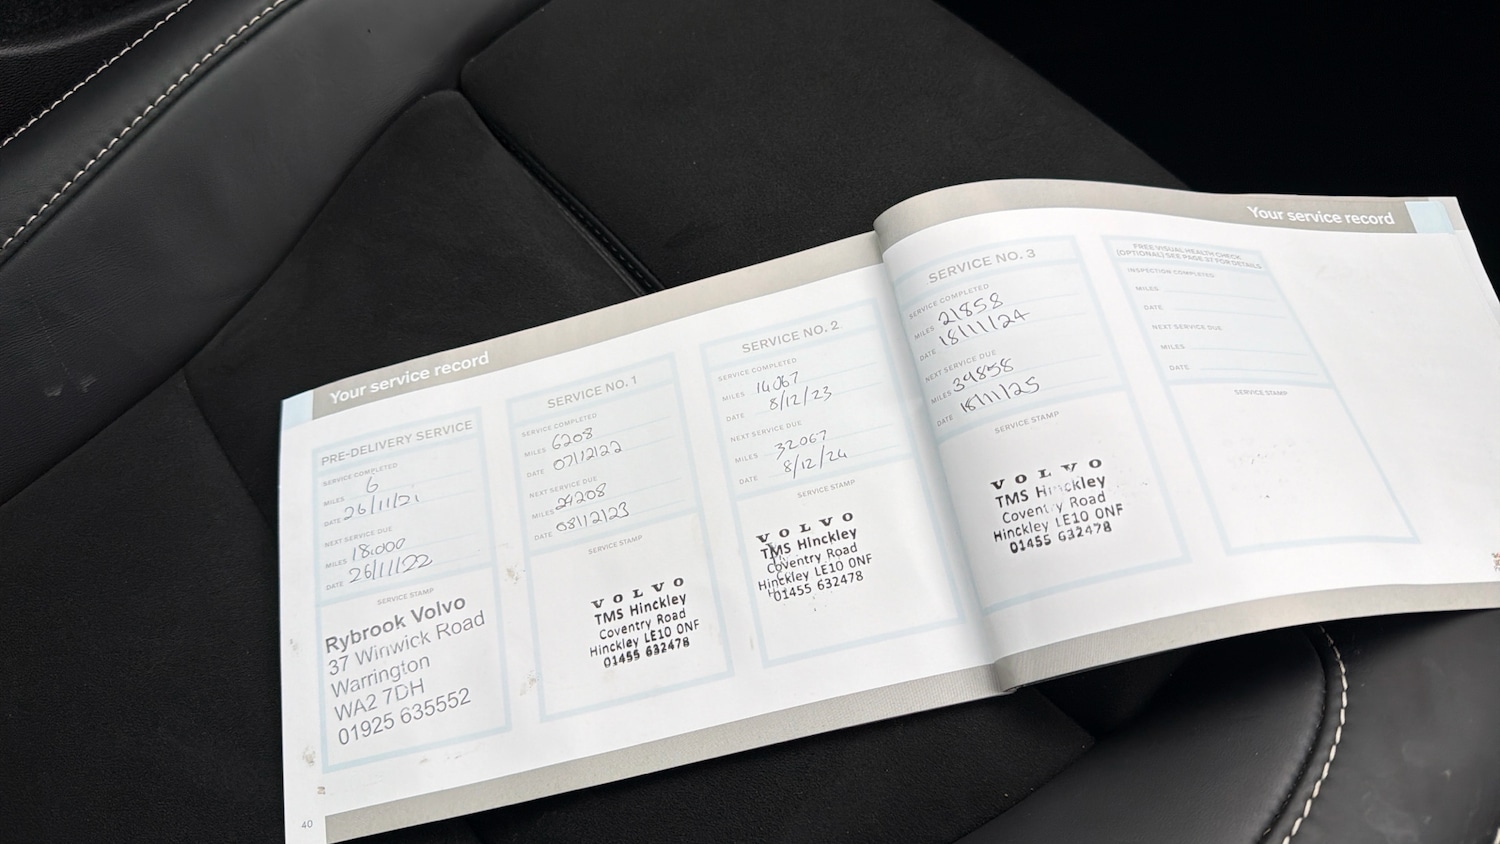 Your service record
PRE-DELIVERY SERVICE
SERVICE COMPLETED
MILES 6
DATE 26/11/21
NEXT SERVICE DUE
MILES 18,000
DATE 26/11/22
SERVICE STAMP
Rybrook Volvo
37 Winwick Road
Warrington
WA2 7DH
01925 635552
SERVICE NO. 1
SERVICE COMPLETED
MILES 6208
DATE 07/12/22
NEXT SERVICE DUE
MILES 24208
DATE 08/12/23
SERVICE STAMP
VOLVO
TMS Hinckley
Coventry Road
Hinckley LE10 0NF
01455 632478
SERVICE NO. 2
SERVICE COMPLETED
MILES 14067
DATE 8/12/23
NEXT SERVICE DUE
MILES 32067
DATE 8/12/24
SERVICE STAMP
VOLVO
TMS Hinckley
Coventry Road
Hinckley LE10 0NF
01455 632478
40
Your service record
SERVICE NO. 3
SERVICE COMPLETED
MILES 21858
DATE 18/11/24
NEXT SERVICE DUE
MILES 39858
DATE 18/11/25
SERVICE STAMP
VOLVO
TMS Hinckley
Coventry Road
Hinckley LE10 0NF
01455 632478
FREE VISUAL HEALTH CHECK
(OPTIONAL) SEE PAGE 37 FOR DETAILS
INSPECTION COMPLETED
MILES
DATE
NEXT SERVICE DUE
MILES
DATE
SERVICE STAMP